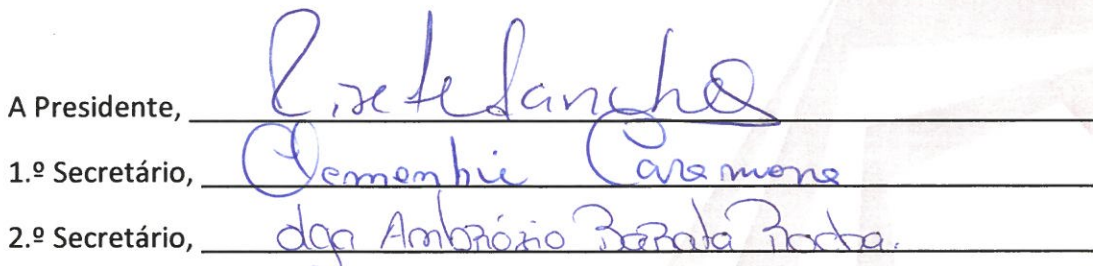 A Presidente, Lizete Sancho
1.º Secretário, Caramona
2.º Secretário, Ambrózio Barata Rocha.